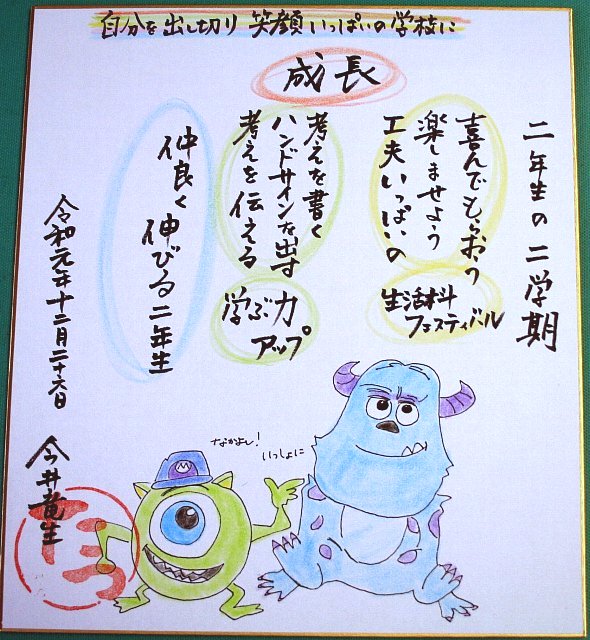 自分を出し切り 笑顔いっぱいの学校に
成長
二年生の二学期
喜んでもらおう
楽しませよう
工夫いっぱいの
生活科
フェスティバル
考えを書く
ハンドサインを出す
考えを伝える
学ぶ力
アップ
仲良く伸びる二年生
令和元年十二月二十六日
今井竜生
なかよし!
いっしょに